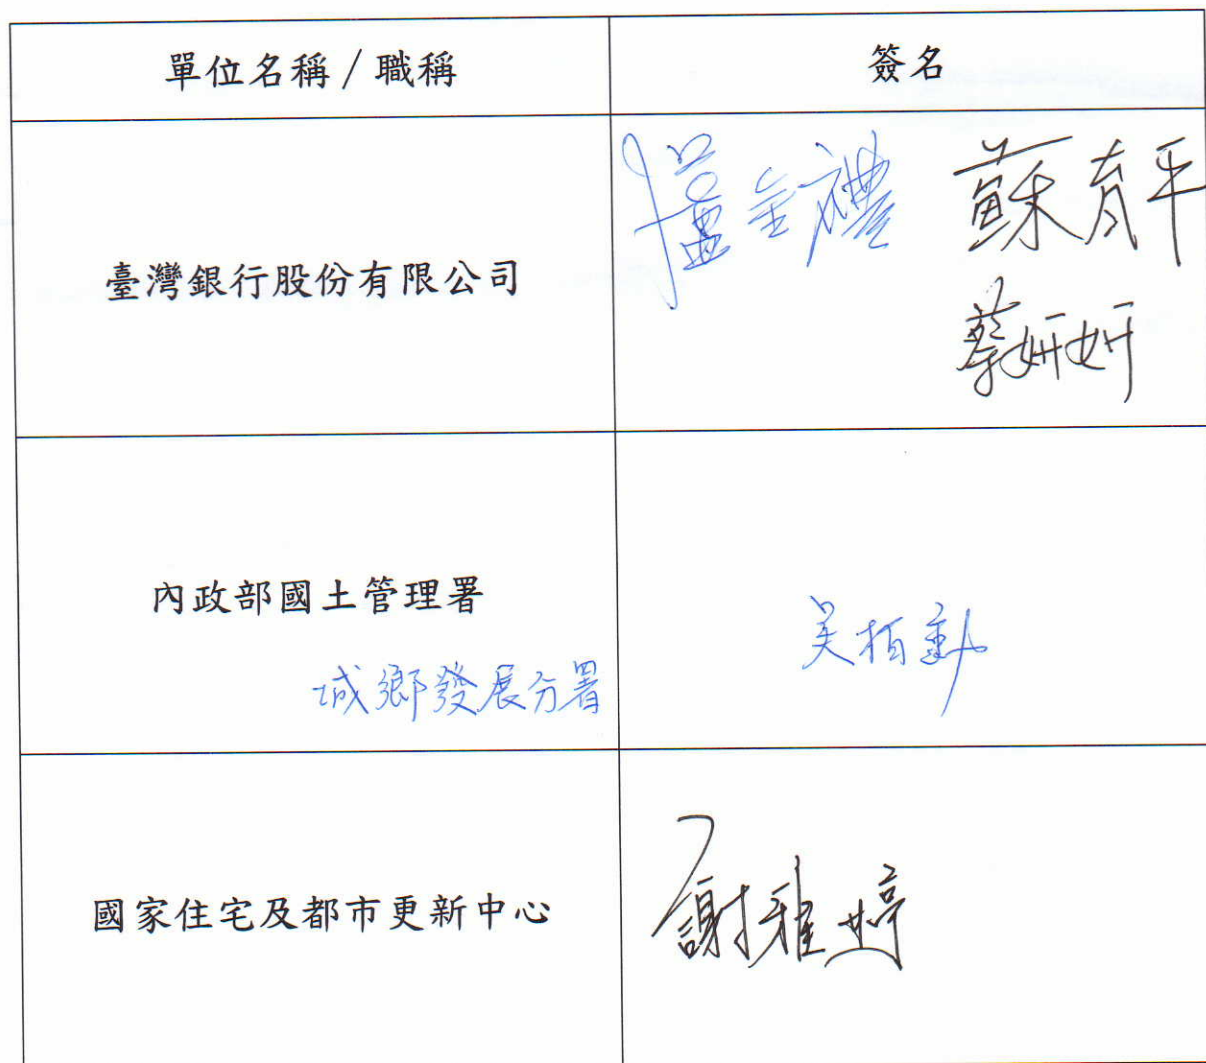 單位名稱/職稱
簽名
臺灣銀行股份有限公司
蘇育平
蔡妍妍
內政部國土管理署
城鄉發展分署
吴柏勳
國家住宅及都市更新中心
謝雅婷